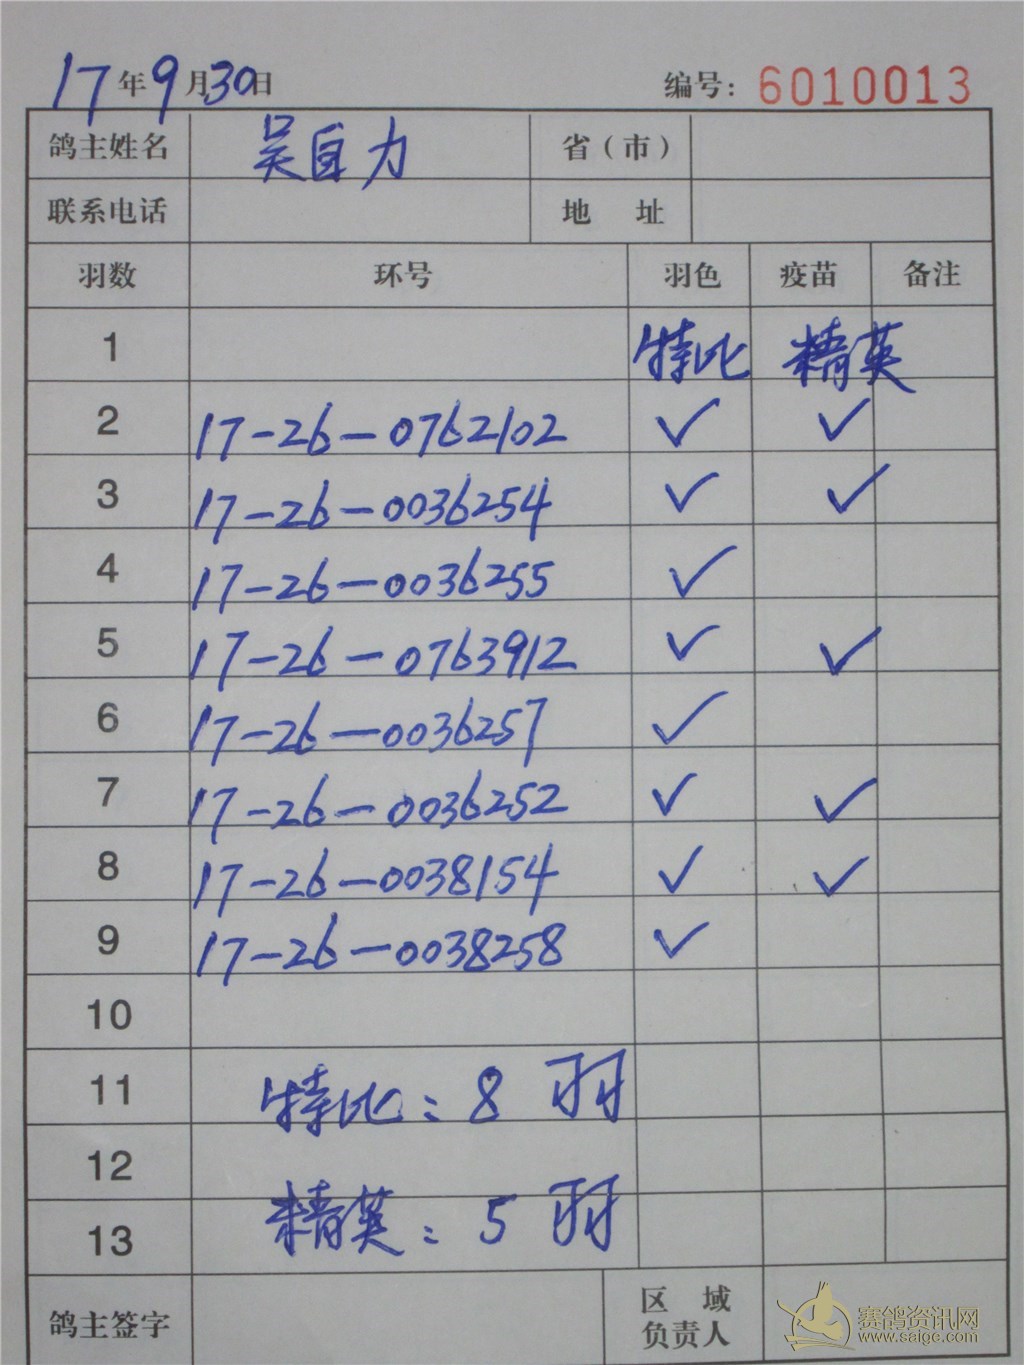 17年9月30日 编号: 6010013
鸽主姓名 吴自力 省(市)
联系电话 地 址
羽数 环号 羽色 疫苗 备注
1 特比 精英
2 17-26-0762102 ✓ ✓
3 17-26-0036254 ✓ ✓
4 17-26-0036255 ✓
5 17-26-0763912 ✓ ✓
6 17-26-0036257 ✓
7 17-26-0036252 ✓ ✓
8 17-26-0038154 ✓ ✓
9 17-26-0038258 ✓
10
11 特比: 8 羽
12
13 精英: 5 羽
鸽主签字 区 域
负责人
赛鸽资讯网
www.saige.com